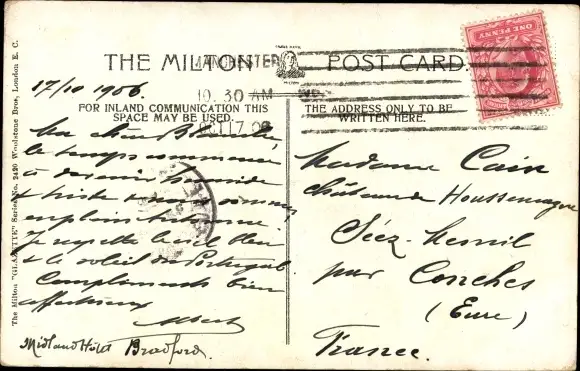 THE MILTON POST CARD
MANCHESTER
10. 30 AM
OCT 17 06
17/10 1906.
FOR INLAND COMMUNICATION THIS
SPACE MAY BE USED.
THE ADDRESS ONLY TO BE
WRITTEN HERE.
ONE PENNY
Ma chère Blanche
le temps commence
à devenir humide
et triste nous sommes
en plein automne.
Je regrette le ciel bleu
et le soleil du Portugal
Compliments bien
affectueux
Albert
Midland Hotel Bradford.
Madame Cain
château de Houssemagne
Séez-Mesnil
par Conches
(Eure)
France.
The Milton "GLAZETTE" Series No. 2420 Woolstone Bros., London E. C.